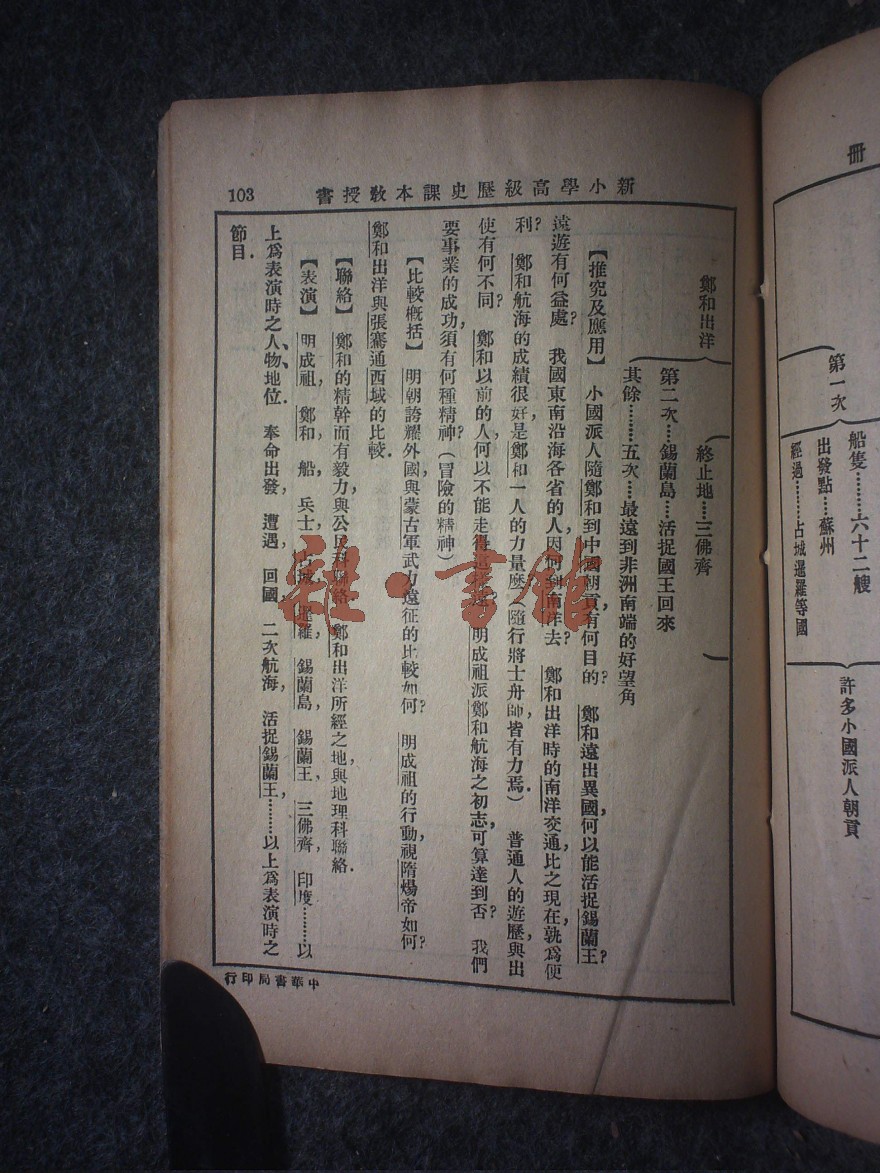 冊
第一次
船隻………六十二艘
出發點……蘇州
經過………占城暹羅等國
許多小國派人朝貢
新小學高級歷史課本教授書
103
鄭和出洋
終止地……三佛齊
第二次……錫蘭島……活捉國王回來
其餘………五次……最遠到非洲南端的好望角
【推究及應用】　小國派人隨鄭和到中國朝貢，有何目的？　鄭和遠出異國，何以能活捉錫蘭王？
遠遊有何益處？　我國東南沿海各省的人，因何到南洋去？　鄭和出洋時的南洋交通，比之現在，孰爲便
利？　鄭和航海的成績很好，是鄭和一人的力量麽？（隨行將士舟師，皆有力焉．）　普通人的遊歷，與出
使有何不同？　鄭和以前的人，何以不能走得這　明成祖派鄭和航海之初志，可算達到否？　我們
要事業的成功，須有何種精神？（冒險的精神）
【比較概括】　明朝誇耀外國，與蒙古軍武力遠征的比較如何？　明成祖的行動，視隋煬帝如何？
鄭和出洋與張騫通西域的比較．
【聯絡】　鄭和的精幹而有毅力與公民科聯絡．鄭和出洋所經之地，與地理科聯絡．
【表演】　明成祖，　鄭和，　船，　兵士，　占城，　暹羅，　錫蘭島，　錫蘭王，　三佛齊，　印度………以
上爲表演時之人物地位．　奉命出發，　遭遇，　回國，　二次航海，　活捉錫蘭王，………以上爲表演時之
節目．
中華書局印行
雜·書館